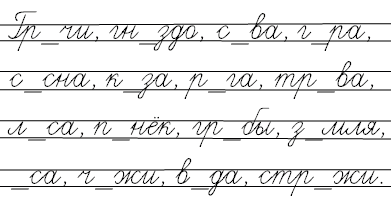 Гр_чи, гн_здо, с_ва, г_ра,
с_сна, к_за, р_га, тр_ва,
л_са, п_нёк, гр_бы, з_мля,
_са, ч_жи, в_да, стр_жи.